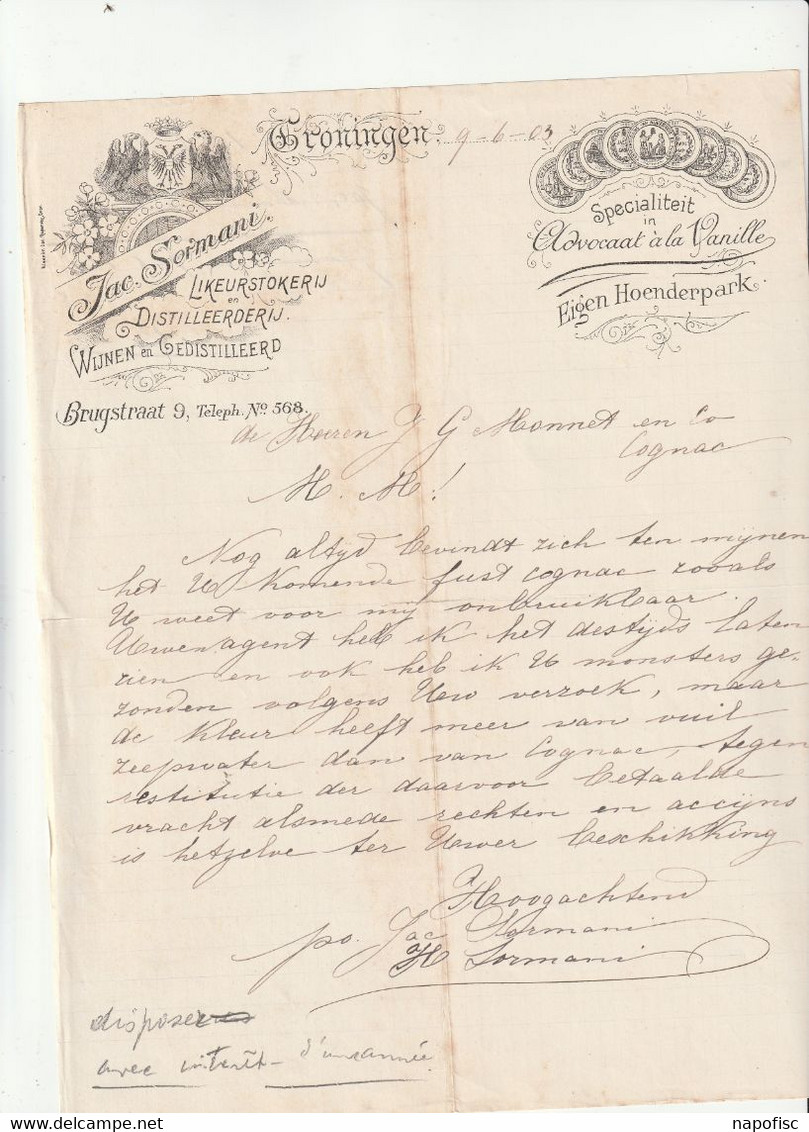 Groningen, 9-6-03
Jac. Sormani.
Likeurstokerij
en
Distilleerderij.
Wijnen en Gedistilleerd
Brugstraat 9, Teleph. No. 568.
Specialiteit
in
Advocaat à la Vanille
Eigen Hoenderpark.
de Heeren J G Monnet en Co
Cognac
M. M!
Nog altyd bevindt zich ten mynen
het U komende fust cognac zooals
U weet voor my onbruikbaar.
Uwen agent heb ik het destyds laten
zien en ook heb ik U monsters ge-
zonden volgens Uw verzoek, maar
de kleur heeft meer van vuil
zeepwater dan van Cognac, tegen
restitutie der daarvoor betaalde
vracht alsmede rechten en accijns
is hetzelve ter Uwer beschikking
Hoogachtend
po. Jac Sormani
H Sormani
disposer
avec intérêt d'une année
napofisc